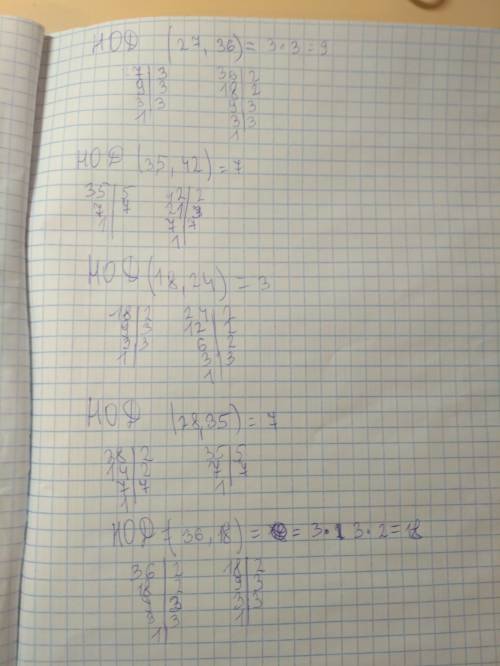 НОД (27, 36) = 3·3 = 9
7|3 36|2
9|3 18|2
3|3 9|3
1| 3|3
1
НОД (35, 42) = 7
35|5 42|2
7|7 21|3
1| 7|7
1|
НОД (18, 24) = 3
18|2 24|2
9|3 12|2
3|3 6|2
1| 3|3
1|
НОД (28, 35) = 7
28|2 35|5
14|2 7|7
7|7 1|
1|
НОД (36, 18) = = 3· 3·2 = 18
36|2 18|2
18|2 9|3
9|3 3|3
3|3 1|
1|